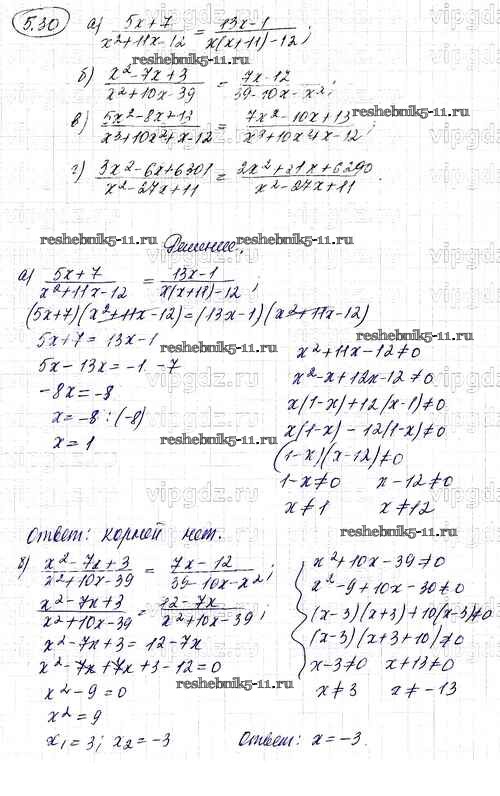 5.30 а) (5x+7)/(x²+11x-12) = (13x-1)/(x(x+11)-12);
б) (x²-7x+3)/(x²+10x-39) = (7x-12)/(39-10x-x²);
в) (5x²-8x+13)/(x³+10x²+x-12) = (7x²-10x+13)/(x³+10x²+x-12);
г) (3x²-6x+6301)/(x²-27x+11) = (2x²+21x+6290)/(x²-27x+11).
Решение.
reshebnik5-11.ru
vipgdz.ru
а) (5x+7)/(x²+11x-12) = (13x-1)/(x(x+11)-12);
(5x+7)(x²+11x-12)=(13x-1)(x²+11x-12)
5x+7 = 13x-1
5x-13x=-1-7
-8x=-8
x=-8:(-8)
x=1
x²+11x-12≠0
x²-x+12x-12≠0
x(1-x)+12(x-1)≠0
x(1-x)-12(1-x)≠0
(1-x)(x-12)≠0
1-x≠0 x-12≠0
x≠1 x≠12
Ответ: корней нет.
б) (x²-7x+3)/(x²+10x-39) = (7x-12)/(39-10x-x²);
(x²-7x+3)/(x²+10x-39) = (12-7x)/(x²+10x-39);
x²-7x+3=12-7x
x²-7x+7x+3-12=0
x²-9=0
x²=9
x₁=3; x₂=-3
x²+10x-39≠0
x²-9+10x-30≠0
(x-3)(x+3)+10(x-3)≠0
(x-3)(x+3+10)≠0
x-3≠0 x+13≠0
x≠3 x≠-13
Ответ: x=-3.